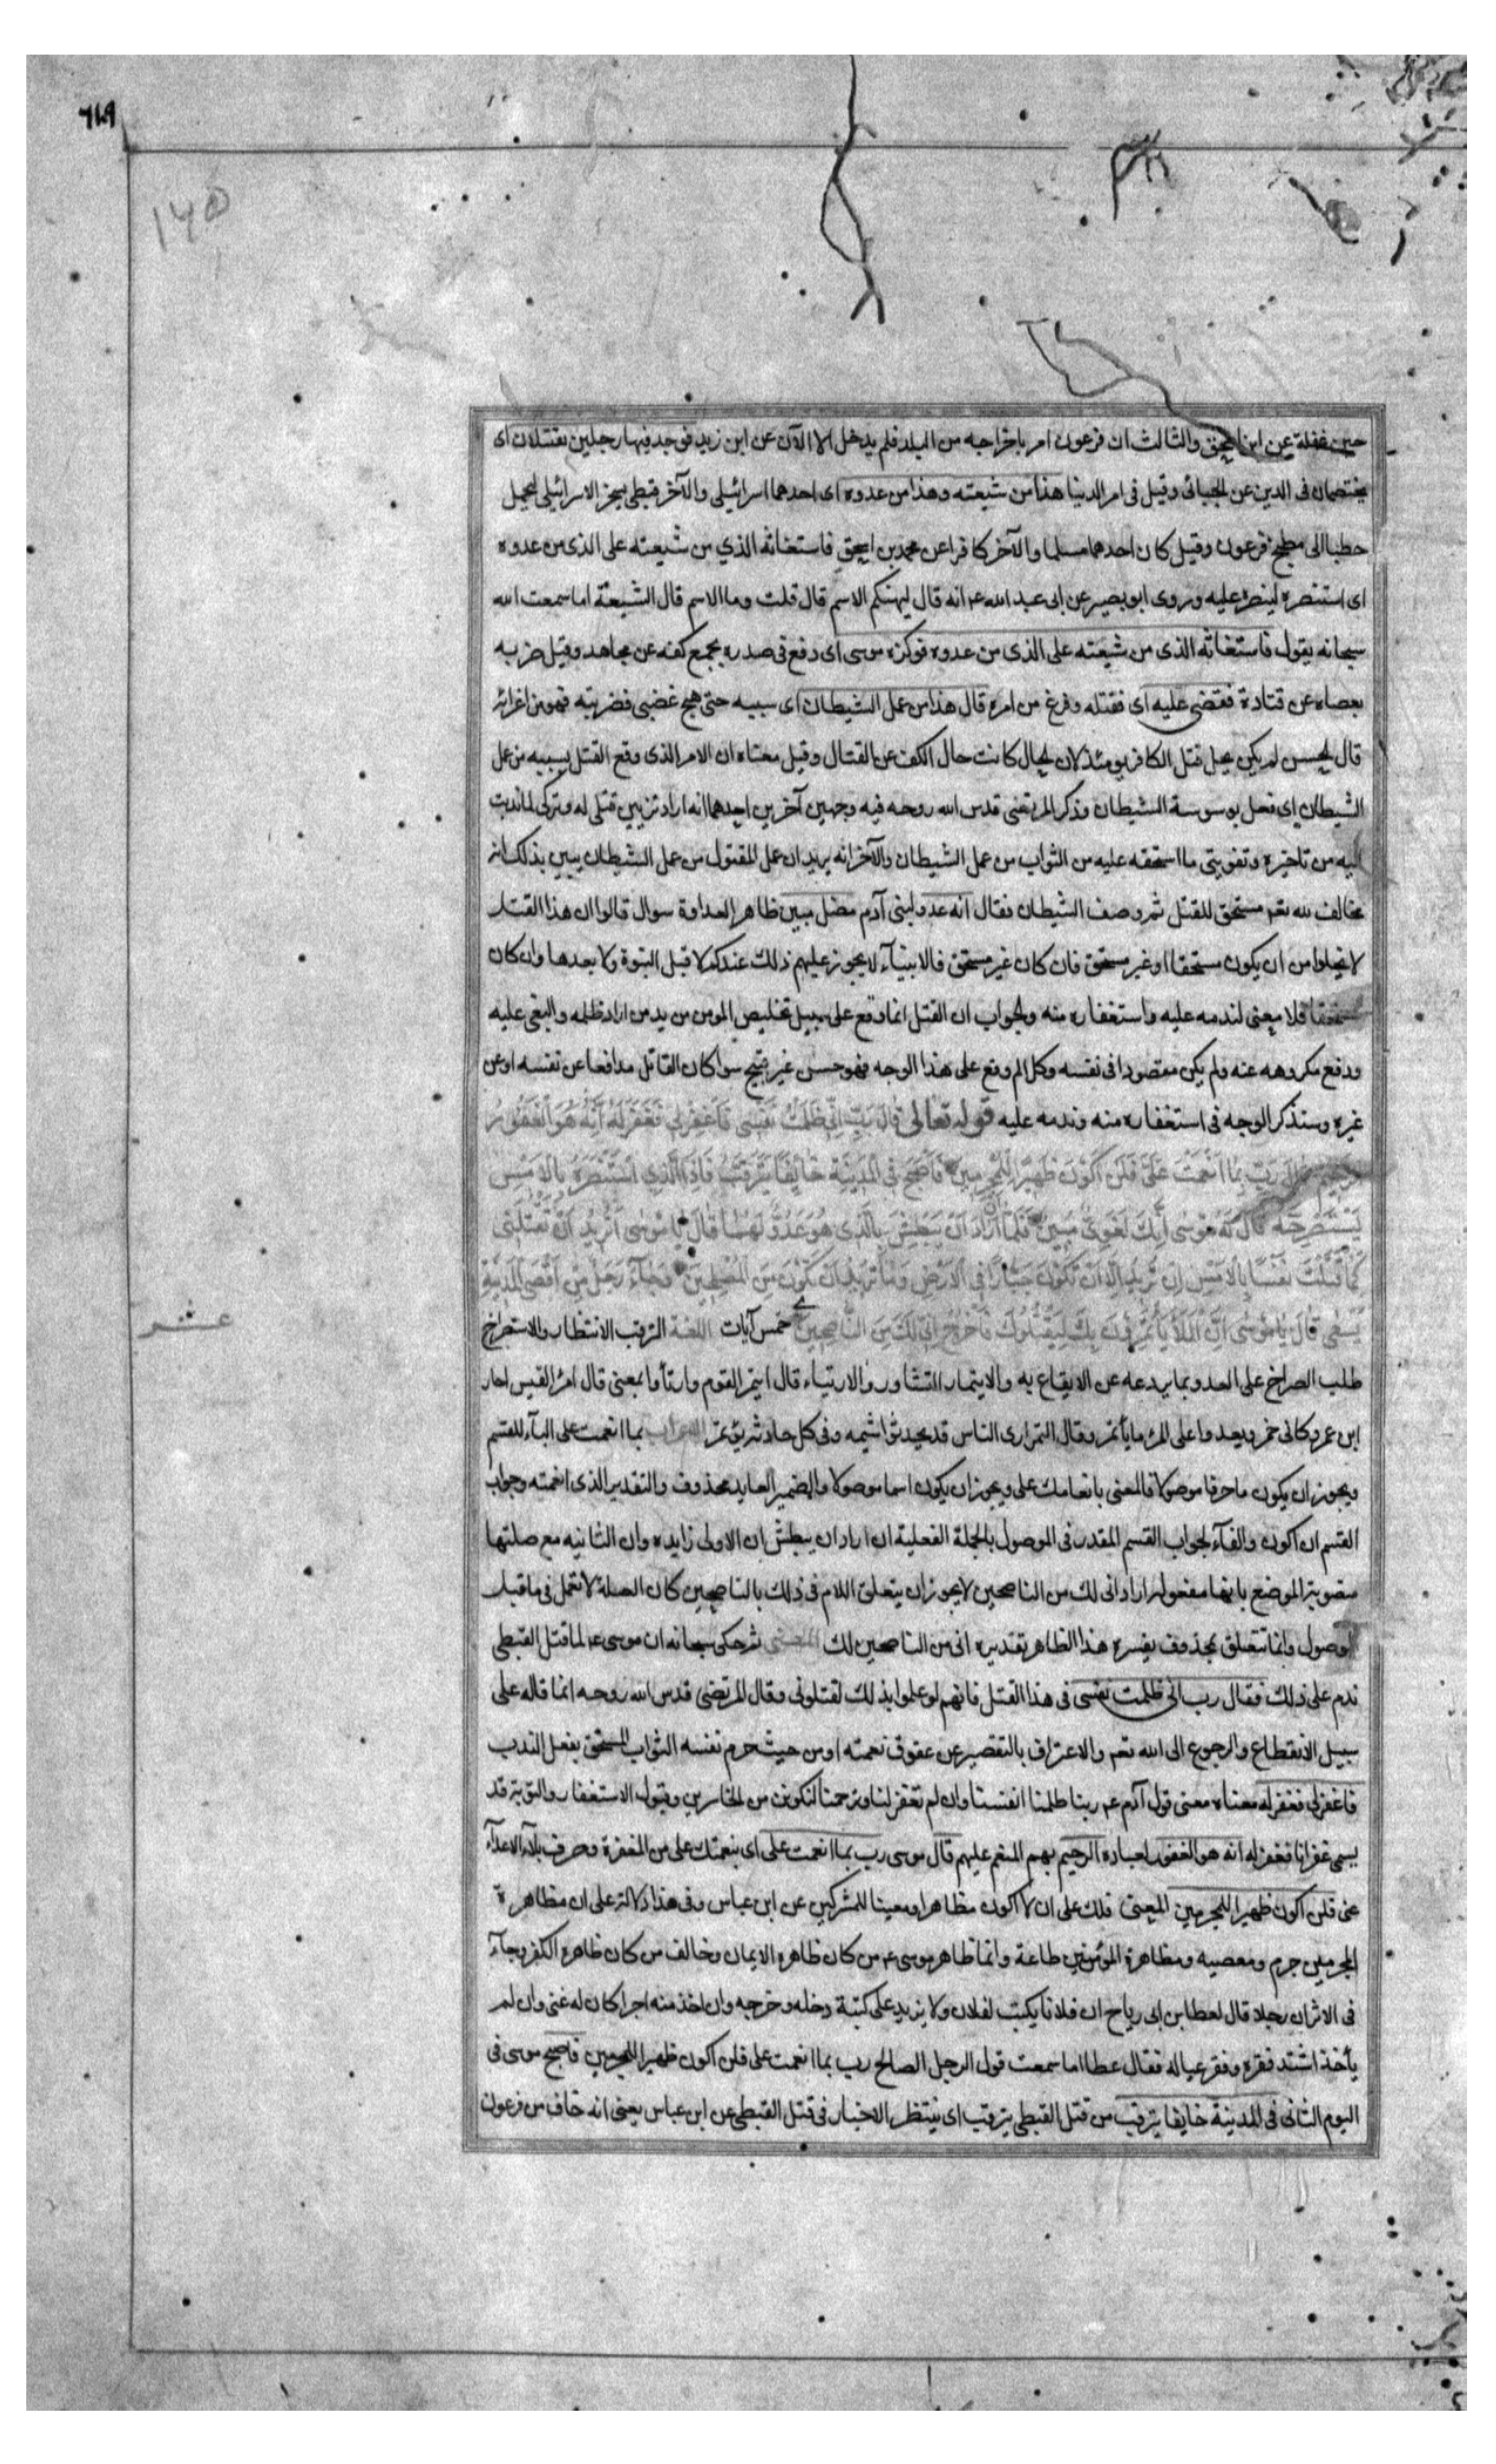 ٦١٩
١٤٥
حين غفلة عن ابن اسحق والثالث ان فرعون امر باخراجه من البلد فلم يدخل الا الآن عن ابن زيد فوجد فيها رجلين يقتتلان اى
يختصمان فى الدين عن الجبائى وقيل فى امر الدنيا هذا من شيعته وهذا من عدوه اى احدهما اسرائيلى والآخر قبطى يسخر الاسرائيلى ليحمل
حطبا الى مطبخ فرعون وقيل كان احدهما مسلما والآخر كافرا عن محمد بن اسحق فاستغاثه الذي من شيعته على الذى من عدوه
اى استنصره لينصره عليه وروى ابو بصير عن ابى عبد الله ع انه قال ليهنكم الاسم قال قلت وما الاسم قال الشيعة اما سمعت الله
سبحانه يقول فاستغاثه الذى من شيعته على الذى من عدوه فوكزه موسى اى دفع فى صدره بجمع كفه عن مجاهد وقيل ضربه
بعصاه عن قتادة فقضى عليه اى فقتله وفرغ من امره قال هذا من عمل الشيطان اى بسببه حتى هيج غضبى فضربته فهو من اغرائه
قال الحسن لم يكن يحل قتل الكافر يومئذ لان الحال كانت حال الكف عن القتال وقيل معناه ان الامر الذى وقع القتل بسببه من عمل
الشيطان اى فعل بوسوسة الشيطان وذكر المرتضى قدس الله روحه فيه وجهين آخرين احدهما انه اراد تزيين قتلى له وتركى لما ندبت
اليه من تاخيره وتفويتى ما استحقه عليه من الثواب من عمل الشيطان والآخر انه يريد ان عمل المقتول من عمل الشيطان يبين بذلك انه
مخالف لله تعم مستحق للقتل ثم وصف الشيطان فقال انه عدو لبنى آدم مضل مبين ظاهر العداوة سوال قالوا ان هذا القتل
لا يخلوا من ان يكون مستحقا او غير مستحق فان كان غير مستحق فالانبيآء لا يجوز عليهم ذلك عندكم لا قبل النبوة ولا بعدها وان كان
مستحقا فلا معنى لندمه عليه واستغفاره منه والجواب ان القتل انما وقع على سبيل تخليص المومن من يد من اراد ظلمه والبغى عليه
ودفع مكروهه عنه ولم يكن مقصودا فى نفسه وكل الم وقع على هذا الوجه فهو حسن غير قبيح سوا كان القاتل مدافعا عن نفسه او عن
غيره وسنذكر الوجه فى استغفاره منه وندمه عليه قوله تعالى قَالَ رَبِّ اِنِّي ظَلَمْتُ نَفْسِى فَاغْفِرْلِى فَغَفَرَ لَهُ اِنَّهُ هُوَ الْغَفُورُ
الرَّحِيمُ قَالَ رَبِّ بِمَا اَنْعَمْتَ عَلَىَّ فَلَنْ اَكُونَ ظَهِيرًا لِلْمُجْرِمِينَ فَاَصْبَحَ فِى الْمَدِينَةِ خَائِفًا يَتَرَقَّبُ فَاِذَا الَّذِى اسْتَنْصَرَهُ بِالْاَمْسِ
يَسْتَصْرِخُهُ قَالَ لَهُ مُوسَى اِنَّكَ لَغَوِىٌّ مُبِينٌ فَلَمَّا اَنْ اَرَادَ اَنْ يَبْطِشَ بِالَّذِى هُوَ عَدُوٌّ لَهُمَا قَالَ يَا مُوسَى اَتُرِيدُ اَنْ تَقْتُلَنِى
كَمَا قَتَلْتَ نَفْسًا بِالْاَمْسِ اِنْ تُرِيدُ اِلَّا اَنْ تَكُونَ جَبَّارًا فِى الْاَرْضِ وَمَا تُرِيدُ اَنْ تَكُونَ مِنَ الْمُصْلِحِينَ وَجَآءَ رَجُلٌ مِنْ اَقْصَى الْمَدِينَةِ
يَسْعَى قَالَ يَا مُوسَى اِنَّ الْمَلَاَ يَاْتَمِرُونَ بِكَ لِيَقْتُلُوكَ فَاخْرُجْ اِنِّى لَكَ مِنَ النَّاصِحِينَ خمس آيات اللغة الترقب الانتظار والاستصراخ
عشر
طلب الصراخ على العدو بما يردعه عن الايقاع به والايتمار التشاور والارتياء قال ايتمر القوم وارتأوا بمعنى قال امرؤ القيس احار
ابن عمرو كانى خمر ويعدوا على المرء ما يأتمر وقال النمر ارى الناس قد يحدثوا شيمه وفى كل حادثة يؤتمر الاعراب بما انعمت على البآء للقسم
ويجوز ان يكون ما حرفا موصولا فالمعنى بانعامك على ويجوز ان يكون اسما موصولا والضمير العايد محذوف والتقدير الذى انعمته وجواب
القسم ان اكون والفآء لجواب القسم المقدر فى الموصول بالجملة الفعلية ان اراد ان يبطش ان الاولى زايده وان الثانيه مع صلتها
منصوبة الموضع بانها مفعول اراد انى لك من الناصحين لا يجوز ان يتعلق اللام فى ذلك بالناصحين كان الصلة لا تعمل فى ما قبل
الموصول وانما تتعلق بمحذوف يفسره هذا الظاهر تقديره انى من الناصحين لك المعنى ثم حكى سبحانه ان موسى ع لما قتل القبطى
ندم على ذلك فقال رب انى ظلمت نفسى فى هذا القتل فانهم لو علموا بذلك لقتلونى وقال المرتضى قدس الله روحه انما قاله على
سبيل الانقطاع والرجوع الى الله تعم والاعتراف بالتقصير عن حقوق نعمته او من حيث حرم نفسه الثواب المستحق بفعل الندب
فاغفر لى فغفر له معناه معنى قول آدم ع ربنا ظلمنا انفسنا وان لم تغفر لنا وترحمنا لنكونن من الخاسرين وقبول الاستغفار والتوبة قد
يسمى غفرانا فغفر له انه هو الغفور لعباده الرحيم بهم المنعم عليهم قال موسى رب بما انعمت على اى بنعمتك على من المغفرة وصرف بلآء الاعدآء
عنى فلن اكون ظهيرا للمجرمين المعنى فلك على ان لا اكون مظاهرا ومعينا للمشركين عن ابن عباس وفى هذا دلالة على ان مظاهرة
المجرمين جرم ومعصيه ومظاهرة المؤمنين طاعة وانما ظاهر موسى ع من كان ظاهره الايمان وخالف من كان ظاهره الكفر وجآء
فى الاثر ان رجلا قال لعطا بن ابى رباح ان فلانا يكتب لفلان ولا يزيد على كتبة دخله وخرجه وان اخذ منه اجرا كان له غنى وان لم
يأخذ اشتد فقره وفقر عياله فقال عطا اما سمعت قول الرجل الصالح رب بما انعمت على فلن اكون ظهيرا للمجرمين فاصبح موسى فى
اليوم الثانى فى المدينة خايفا يترقب من قتل القبطى يترقب اى ينتظر الاخبار فى قتل القبطى عن ابن عباس يعنى انه خاف من فرعون